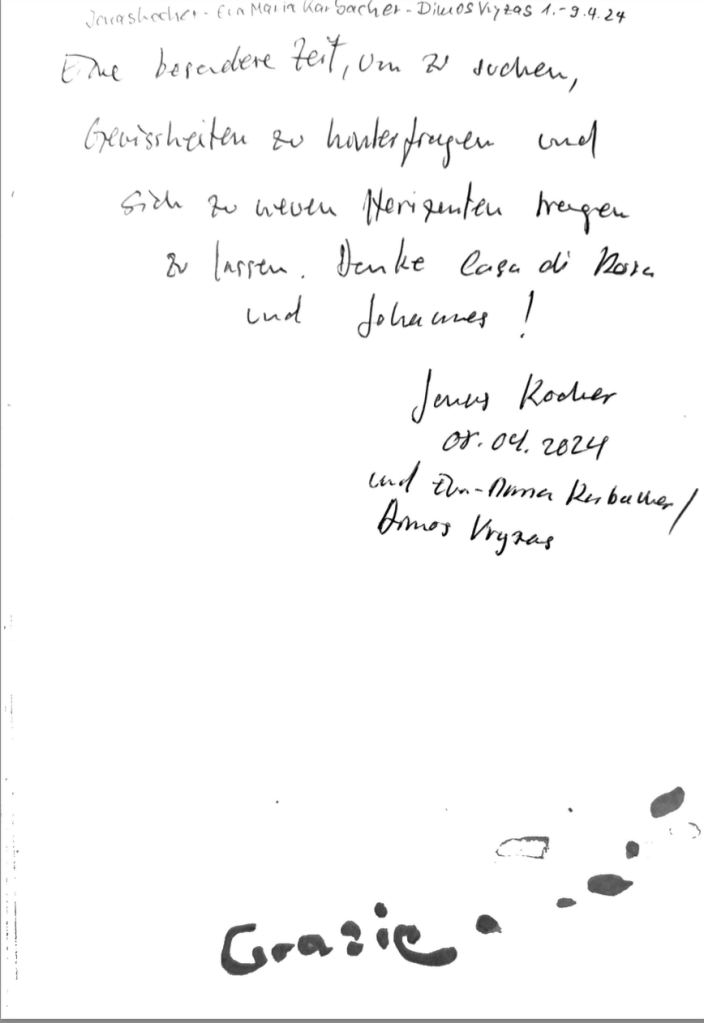 Jonas Kocher - Eva Maria Karbacher - Dimos Vryzas 1.-9.4.24
Eine besondere Zeit, um zu suchen,
Gewissheiten zu hinterfragen und
sich zu neuen Horizonten tragen
zu lassen. Danke Casa di Rosa
und Johannes!
Jonas Kocher
08.04.2024
und Eva-Maria Karbacher/
Dimos Vryzas
Grazie